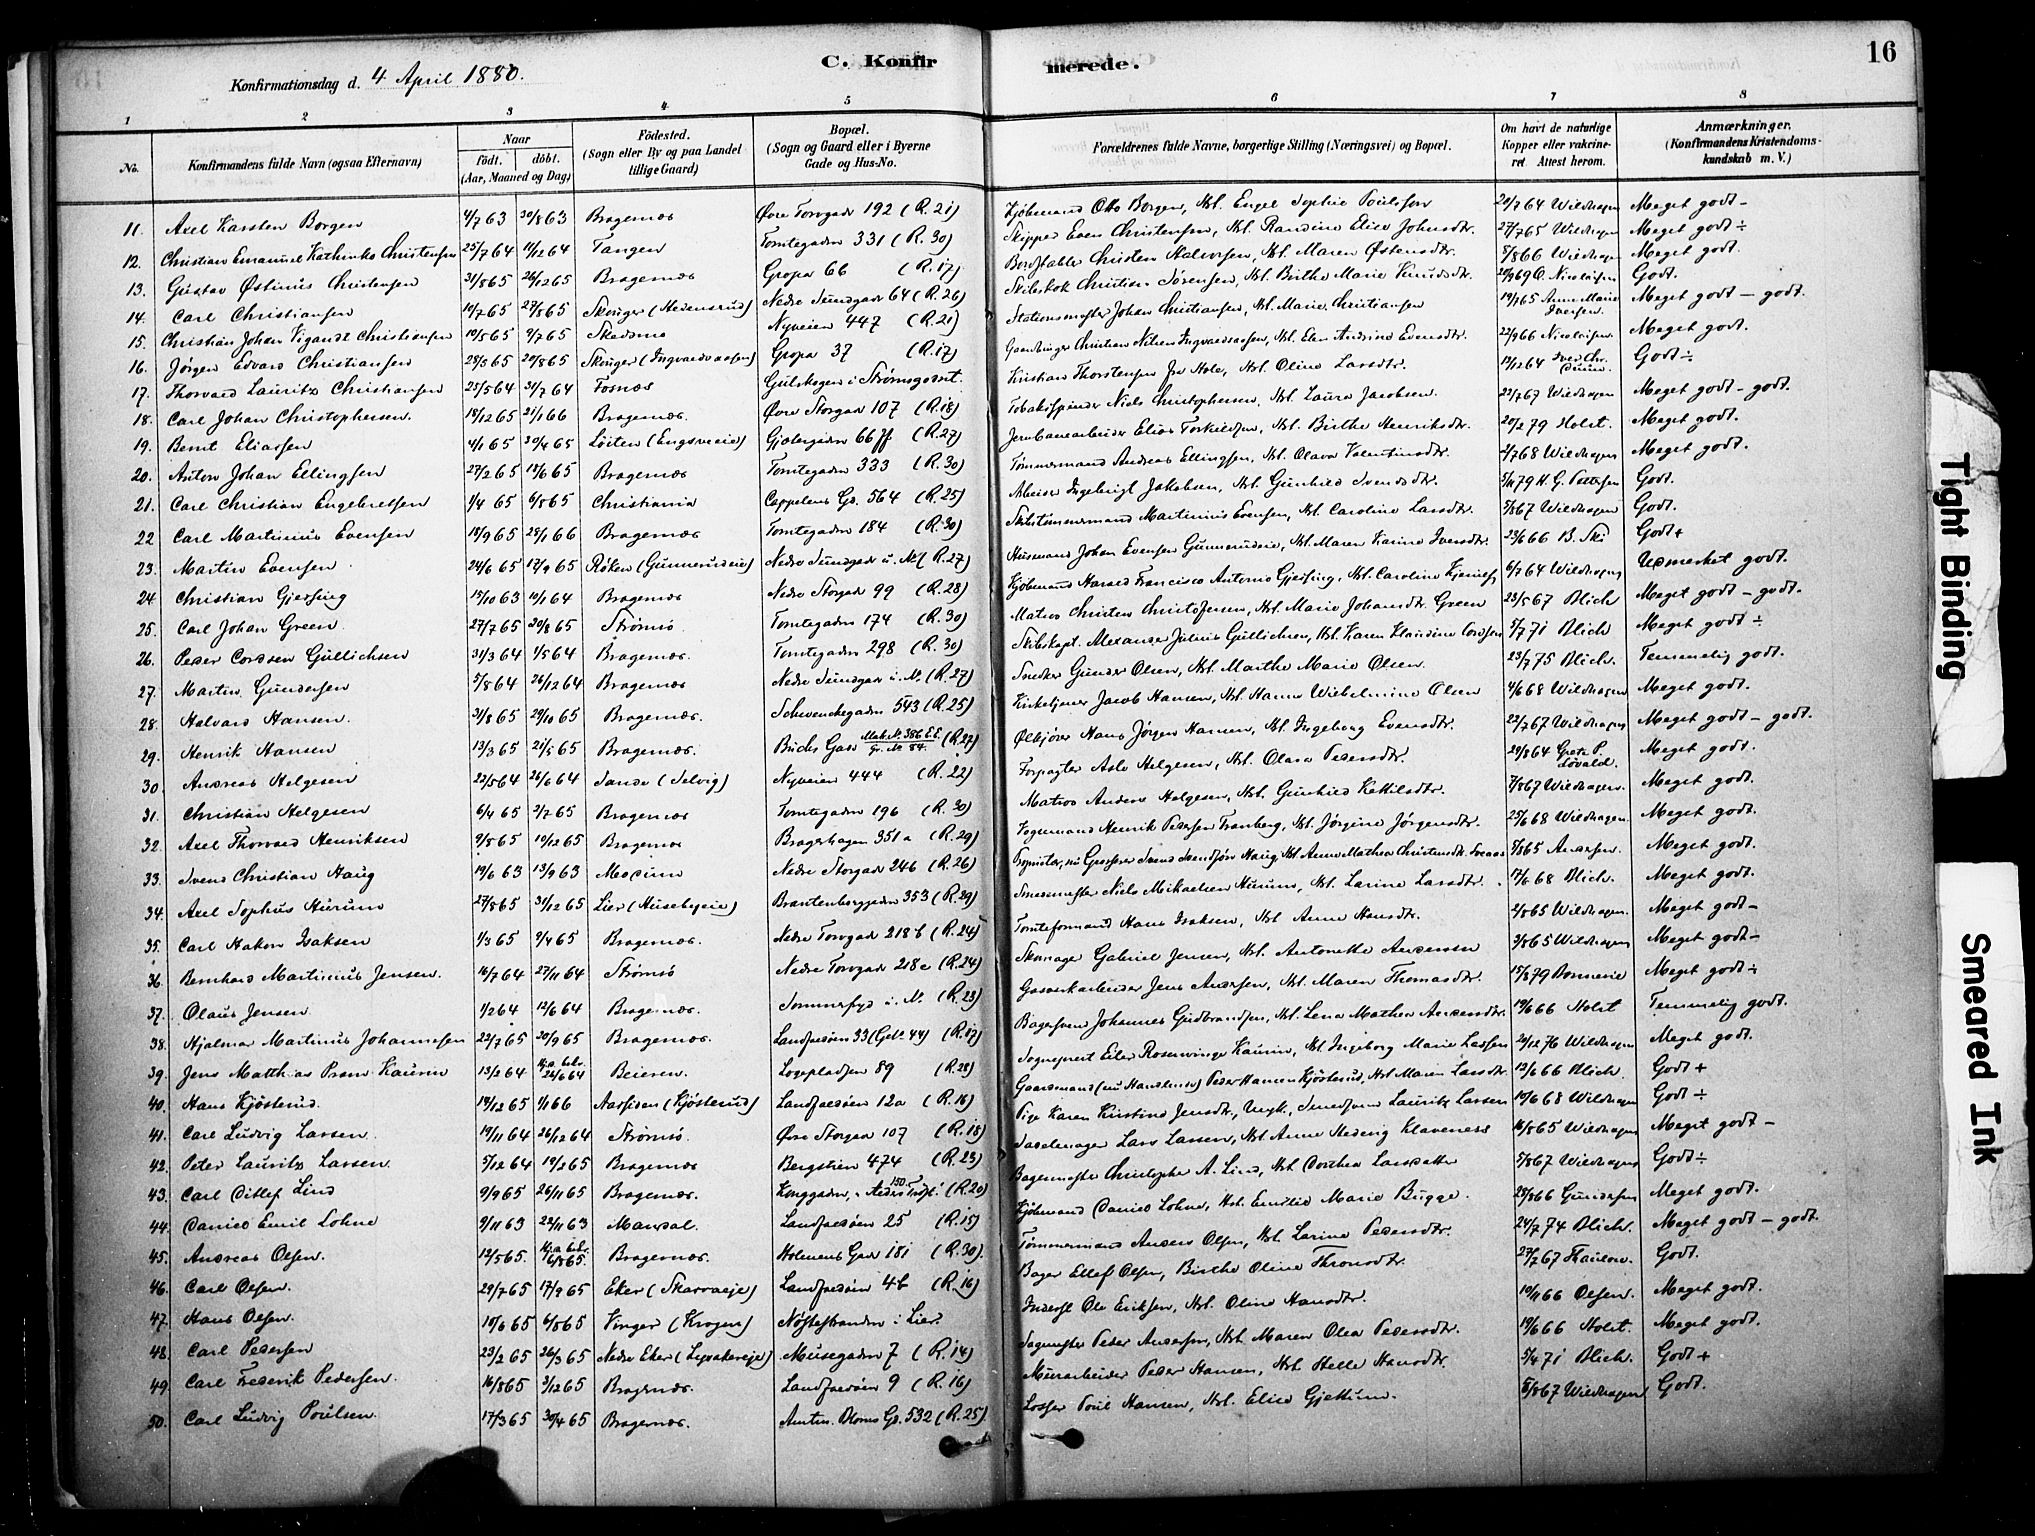 C. Konfirmerede.
16
Konfirmationsdag d. 4 April 1880.
1 2 3 4 5 6 7 8
No.
Konfirmandens fulde Navn (ogsaa Efternavn)
Naar
födt. döbt.
(Aar, Maaned og Dag)
Födested.
(Sogn eller By og paa Landet
tillige Gaard)
Bopæl.
(Sogn og Gaard eller i Byerne
Gade og Hus-No.
Forældrenes fulde Navne, borgerlige Stilling (Næringsvei) og Bopæl.
Om havt de naturlige
Kopper eller vakcine-
ret Attest herom.
Anmærkninger.
(Konfirmandens Kristendoms-
kundskab m. V.)
11. Axel Karsten Borgen 4/7 63 30/8 63 Bragernæs Øvre Torvgade 192 (R. 21) Kjøbmand Otto Borgen, Hst. Engel Sophie Poulsen 20/7 64 Wildhagen Meget godt -
12. Christian Emanuel Kathinko Christensen 25/7 64 11/12 64 Tangen Tomtegaden 331 (R. 30) Skipper Even Christensen, Hst. Randine Elise Johnsdtr. 27/7 65 Wildhagen Meget godt ÷
13. Gustav Østinus Christensen 31/8 65 26/12 65 Bragernæs Gropa 66 (R. 17) Bordstabler Christen Halvorsen, Hst. Maren Østensdtr. 8/8 66 Wildhagen Meget godt.
14. Carl Christiansen 10/7 65 27/8 65 Skouger (Hedensrud) Nedre Sundgade 64 (R. 26) Skibskok Christian Sørensen, Hst. Birthe Marie Knudsdtr. 20/9 69 O. Nicolaisen Godt.
15. Christian Johan Vigandt Christiansen 10/5 65 9/7 65 Skedsmo Nyveien 447 (R. 21) Stationsmester Johan Christiansen, Hst. Marie Christiansen 19/7 65 Anne Marie Iversen Meget godt - godt.
16. Jørgen Edvard Christiansen 28/5 65 20/8 65 Skouger (Ingvardsaasen) Gropa 37 (R. 17) Gaardbruger Christian Nilsen Ingvardsaasen, Hst. Elen Andrine Evensdtr. 22/9 66 Nicolaisen Meget godt.
17. Thorvard Lauritz Christiansen 25/5 64 31/7 64 Fosnæs Gulskogen i Strømsgodset. Kristian Thorstensen fra Hole, Hst. Oline Larsdtr. 19/12 64 Godt ÷
18. Carl Johan Christophersen. 18/12 65 21/1 66 Bragernæs. Øvre Storgade 107 (R. 18) Tobakspinder Niels Christophersen, Hst. Laura Jacobsen 22/7 67 Wildhagen Meget godt - godt.
19. Bernt Eliassen 4/1 65 30/4 65 Løiten (Engsveeie) Gjetergaden 66 ff (R. 27) Jernbanearbeider Elias Torkildsen, Hst. Birthe Henriksdtr. 20/2 79 Holst. Meget godt.
20. Anton Johan Ellingsen 27/2 65 18/6 65 Bragernæs Tomtegaden 333 (R. 30) Tømmermand Andreas Ellingsen, Hst. Olava Valentinsdtr. 2/7 68 Wildhagen Meget godt.
21. Carl Christian Engebretsen 1/4 65 6/8 65 Christiania Cappelens Gd. 564 (R. 25) Arbeider Ingebrigt Jakobsen, Hst. Gunhild Svendsdtr. 5/11 79 H. G. Pettersen Godt.
22 Carl Martinius Evensen 19/9 65 28/1 66 Bragernæs Tomtegaden 184 (R. 30) Skibstømmermand Martinius Evensen, Hst. Caroline Larsdtr. 5/8 67 Wildhagen Godt.
23. Martin Evensen 24/6 65 17/9 65 Røken (Gunnerudeie) Nedre Sundgade u. No (R. 27) Husmand Johan Evensen Gunnerudeie, Hst. Maren Karine Iversdtr. 23/6 66 B. Ski Godt +
24. Christian Gjersing 15/10 63 10/1 64 Bragernæs Nedre Storgade 99 (R. 28) Kjøbmand Harald Francisco Antonio Gjersing, Hst. Caroline 6/7 64 Wildhagen Udmerket godt.
25. Carl Johan Green. 27/7 65 20/8 65 Strømsø Tomtegaden 174 (R. 30) Matros Christen Christofersen, Hst. Marie Johansdtr. Green 23/5 67 Blich Meget godt - godt.
26. Peder Cordsen Gullichsen 31/3 64 1/5 64 Bragernæs. Tomtegaden 298 (R. 30) Skibskapt. Alexander Julius Gullichsen, Hst. Karen Klaudine Cordsen 5/7 71 Blich Meget godt ÷
27. Martin Gundersen 5/8 64 26/12 64 Bragernæs Nedre Sundgade i. No (R. 27) Snedker Gunder Olsen, Hst. Marthe Marie Olsen 23/7 75 Blich. Temmelig godt.
28. Halvard Hansen. 31/8 65 29/10 65 Bragernæs. Schwenckegaden 543 (R. 25) Kirketjener Jacob Hansen, Hst. Hanne Wilhelmine Olsen 4/6 68 Wildhagen Meget godt.
29. Henrik Hansen 13/3 65 21/5 65 Bragernæs. Buchs Gade Matr. No. 386 E.E. Gr. No 84. (R. 27) Ølkjører Hans Jørgen Hansen, Hst. Ingeborg Evensdtr. 22/7 67 Wildhagen Meget godt - godt.
30. Andreas Helgesen 22/5 64 26/6 64 Sande (Selvig) Nyveien 444 (R. 22) Forpagter Asle Helgesen, Hst. Olava Pedersdtr. 29/8 64 Grete P. Løvald. Meget godt.
31. Christian Helgesen 6/4 65 2/7 65 Bragernæs Tomtegaden 196 (R. 30) Matros Anders Helgesen, Hst. Gunhild Kettilsdtr. 7/8 67 Wildhagen. Meget godt.
32. Axel Thorvald Henriksen 9/8 65 10/12 65 Bragernæs Bragerhagen 351a (R. 29) Vognmand Henrik Pedersen Tranberg, Hst. Jørgine Jørgensdtr. 25/6 68 Wildhagen. Meget godt.
33. Svend Christian Haug 19/6 63 13/9 63 Modum Nedre Storgade 246 (R. 26) 8/8 65 Andersen. Meget godt.
34. Axel Sophus Hurum 27/8 65 31/12 65 Lier (Husebyeie) Brantenberggaden 353 (R. 29) Smedmester Niels Mikaelsen Hurum, Hst. Larine Larsdtr. 17/6 68 Blich. Meget godt.
35. Carl Hakon Isaksen 1/3 65 9/4 65 Bragernæs. Nedre Torvgade 218 b (R. 24) Tomteformand Hans Isaksen, Hst. Anne Hansdtr. 2/8 65 Wildhagen. Meget godt -
36. Bernhard Martinius Jensen. 16/7 64 27/11 64 Strømsø Nedre Torvgade 218 c (R. 24) Skomager Gabriel Jensen, Hst. Antonette Andersen 3/8 65 Wildhagen Meget godt -
37. Olaus Jensen 1/2 64 12/6 64 Bragernæs. Sommerfyd i. No. (R. 23) Gasværkarbeider Jens Andersen, Hst. Maren Thomasdtr. 15/8 79 Bonnevie Meget godt ÷
38. Hjalmar Martinius Johannesen 22/7 65 20/9 65 Bragernæs. Landfaldøen 33 (Gule 44) (R. 17) Bagersvend Johannes Gudbrandsen, Hst. Lena Mathea Andersdtr. 19/6 66 Holst Temmelig godt.
39. Jens Matthias Pram Kaurin 13/2 64 24/6 64 Beieren. Logepladsen 89 (R. 28) Sogneprest Eiler Rosenvinge Kaurin, Hst. Ingeborg Marie Lassen 20/12 76 Wildhagen Meget godt.
40. Hans Kjøsterud. 14/12 65 1/1 66 Aassiden (Kjøsterud) Landfaldøen 12a (R. 16) Gaardmand (nu Handlende) Peder Hansen Kjøsterud, Hst. Maren Larsdtr. 13/6 66 Blich. Godt +
41. Carl Ludvig Larsen 19/11 64 26/12 64 Strømsø. Øvre Storgade 107 (R. 18) Pige Karen Kristine Jensdtr., Ungk. Lauritz Larsen 10/6 68 Wildhagen Godt ÷
42. Peter Lauritz Larsen. 5/12 64 19/2 65 Bragernæs Bergstien 474 (R. 23) Sadelmager Lars Larsen, Hst. Anne Hedevig Klaveness 16/8 65 Wildhagen Meget godt -
43. Carl Ditlef Lind 9/9 65 26/11 65 Bragernæs. Konggaden, 150 (R. 20) Bagermester Christopher A. Lind, Hst. Dorthea Larsdatter 5/8 67 Wildhagen Godt ÷
44. Daniel Emil Lohne 9/11 63 22/11 63 Mandal. Landfaldøen 25 (R. 15) Kjøbmand Daniel Lohne, Hst. Emilie Marie Bugge. 28/8 66 Gundersen Meget godt.
45. Andreas Olsen. 12/5 65. 6/8 65. Bragernæs. Holmens Gade 181 (R. 30). Tømmermand Anders Olsen, Hst. Larine Pedersdtr. 24/7 74 Blich. Meget godt - godt.
46. Carl Olsen. 29/7 65 17/9 65 Eker (Skarraeje) Landfaldøen 4b (R. 16) Bager Ellef Olsen, Birthe Oline Thronsdtr. 27/7 67 Thaulow. Godt.
47. Hans Olsen. 10/6 65 6/8 65 Vinger (Krogen) Nøstestranden i Lier. Inderst Ole Eriksen, Hst. Oline Hansdtr. 10/11 66 Olsen. Meget godt.
48. Carl Pedersen 23/2 65 26/3 65 Nedre Eker (Lysakereje) Musegaden 7 (R. 14) Sagmester Peder Andersen, Hst. Maren Olea Pedersdtr. 19/6 66 Holst. Meget godt.
49. Carl Frederik Pedersen. 16/8 65 3/12 65 Bragernæs. Landfaldøen 9 (R. 16) Murarbeider Peder Hansen, Hst. Helle Hansdtr. 5/4 71 Blich. Godt +
50. Carl Ludvig Poulsen. 17/3 65 30/4 65 Bragernæs. Amtm. Bloms Gd. 532 (R. 25). Losser Poul Hansen, Hst. Elise Gjettum. 8/8 67 Wildhagen Godt.
Tight Binding
Smeared Ink